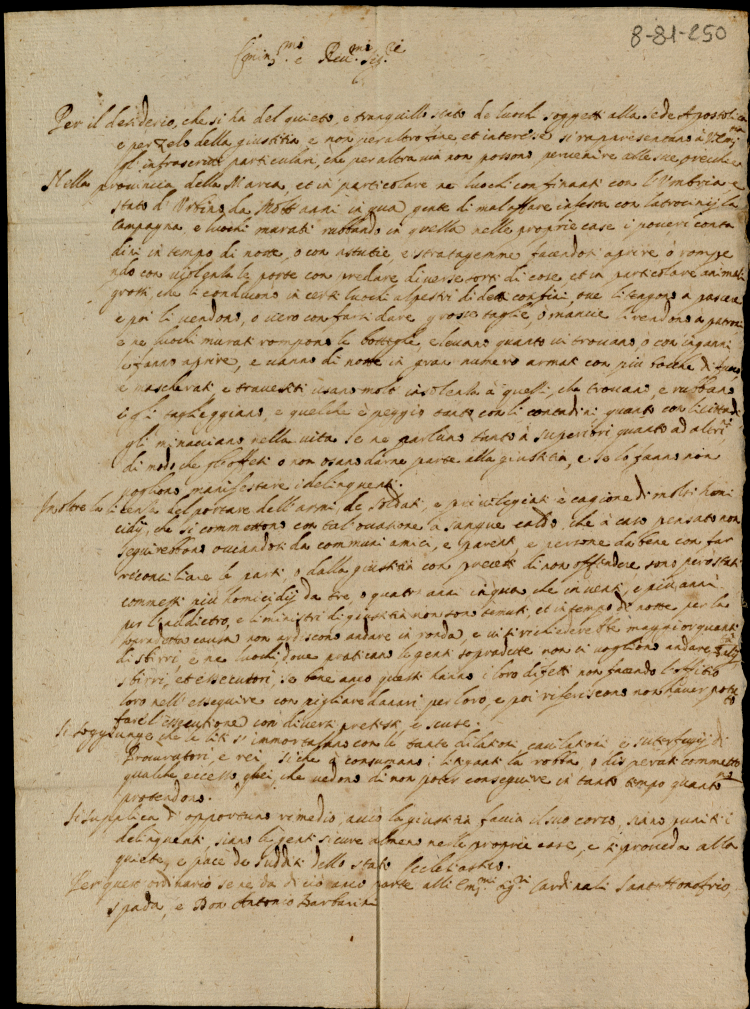 8-81-250
Emin.mi e Reu.mi Sig.ri
Per il desiderio, che si ha del quieto, e tranquillo stato de luochi soggetti alla Sede Apostolica
e per zelo della giustitia e non per altro fine et interesse si rapresentano à
gl'infrascritti particulari, che per altra uia non possono peruenire alle sue orecchie
Nella prouincia della Marca, et in particolare ne luochi confinanti con l'Umbria, e
stato d'Urbino, da molti anni in qua gente di mal affare infesta con latrocinij la
campagna, e luochi murati rubbando in quella nelle proprie case i poueri conta
dini in tempo di notte, o con astutie, e stratagemme facendosi aprire ò rompe
ndo con uiolenza le porte con predare diuerse sorti di cose, et in particolare animali
grossi, che li conducono in certi luochi alpestri di detti confini, oue li tengono a pascere
e poi li uendono, o uero con farsi dare grosse taglie, o mancie li rendono a patroni
e ne luochi murati rompono le botteghe, e leuano quanto ui trouano, o con inganni
le fanno aprire, e uanno di notte in gran numero armati con più bocche di fuoco
e mascherati, e trauestiti usano molti insolenza à quelli, che trouano, e rubbano
e gli taglieggiano, e quelche è peggio tanto con li contadini quanto con li cittadini
gli minacciano nella uita se ne parlano tanto à superiori quanto ad altri
di modo che gl'offesi o non osano darne parte alla giustitia, e se lo fanno non
uogliono manifestare i delinquenti.
Inoltre la licenza del portare dell'armi de soldati, e priuilegiati è cagione di molti homi
cidij, che si commettono con tal occasione à sangue caldo, che à caso pensato non
seguirebbono ouuiandosi da communi amici, e parenti, e persone da bene con far
reconciliare le parti o dalla giustitia con precetti di non offendere sono però stati
commessi più homicidij da tre, o quattro anni in qua che in uenti, e più anni
per l'addietro, e li ministri di giustitia non son temuti, et in tempo di notte per la
sopradetta causa non ardiscono andare in ronda, e ui si richiedere maggior quantità
di sbirri, e ne luochi doue praticano le genti sopradette non ci uogliono andare
sbirri, et essecutori, se bene anco questi hanno i loro difetti non facendo l'offitio
loro nell'esseguire con pigliare danari per loro, e poi riferiscono non hauer potuto
fare l'essecutione con diuersi pretesti, e scuse.
Si soggiunge che le liti s'immortalano con le tante dilationi, cauilationi, e suterfugij di
Procuratori, e rei, si che si consumano i litiganti la robba, o disperati commettono
qualche eccesso quei, che uedono di non poter conseguire in tanto tempo quanto
pretendono.
Si supplica d'opportuno rimedio, acciò la giustitia faccia il suo corso, siano puniti i
delinquenti, siano le genti sicure almeno nelle proprie case, e si proueda alla
quiete, e pace de sudditi dello stato Ecclesiastico.
Per questo ordinario se ne da di ciò anco parte alli Em.mi Sig.ri Cardinali Sant'Honofrio,
Spada, e Don Antonio Barbarini